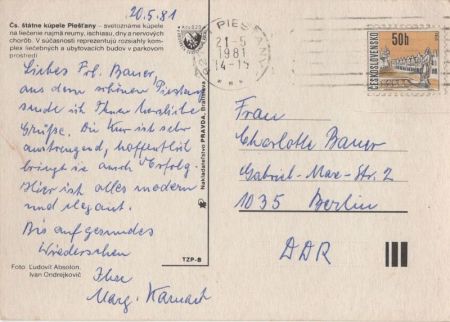 20.5.81
Čs. štátne kúpele Piešťany – svetoznáme kúpele
na liečenie najmä reumy, ischiasu, dny a nervových
chorôb. V súčasnosti reprezentujú rozsiahly kom-
plex liečebných a ubytovacích budov v parkovom
prostredí
Liebes Frl. Bauer,
aus dem schönen Piestan
sende ich Ihnen herzliche
Grüße. Die Kur ist sehr
anstrengend, hoffentlich
bringt sie auch Erfolg.
Hier ist alles modern
und elegant.
Bis auf gesundes
Wiedersehen
Ihre
Marg. Karnach
Foto: Ľudovít Absolon,
Ivan Ondrejkovič
TZP-B
Nakladateľstvo PRAVDA, Bratislava
PIEŠŤANY
21-5
1981
14-15
50h
ČESKOSLOVENSKO
Frau
Charlotte Bauer
Gabriel-Max-Str. 2
1035 Berlin
DDR